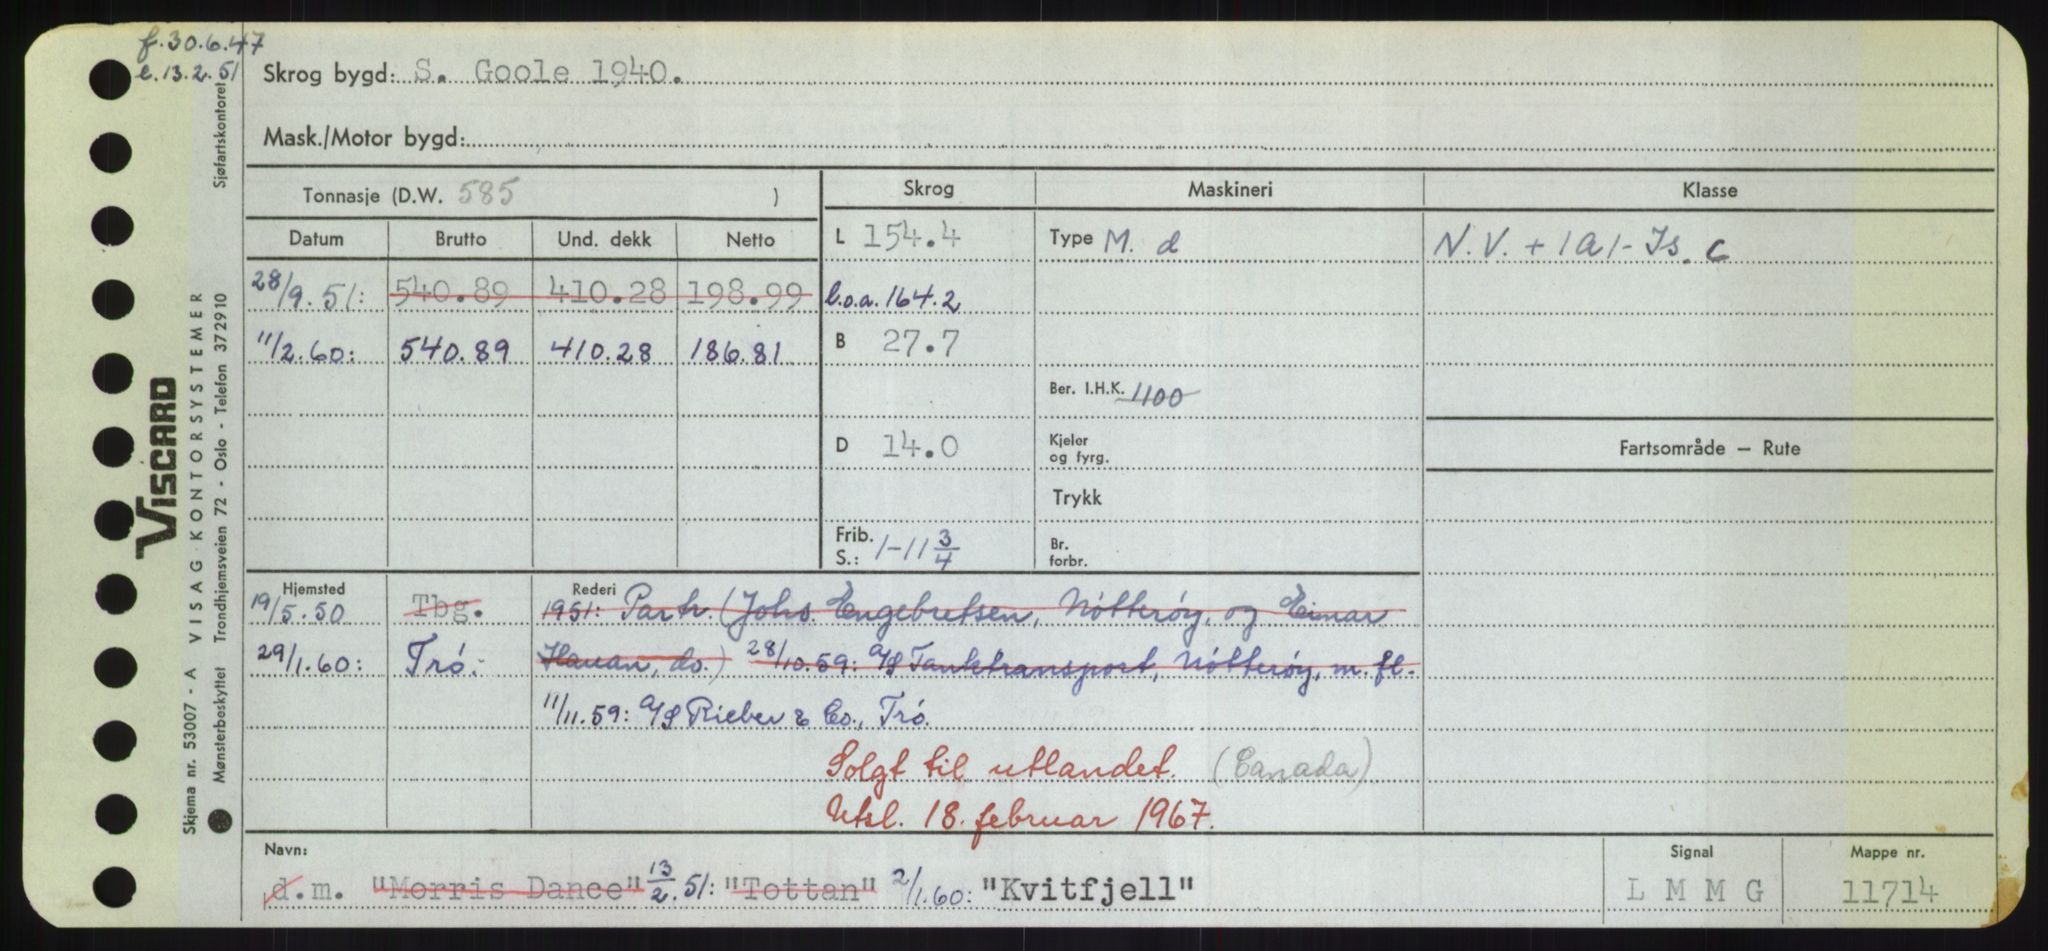 f. 30.6.47
e. 13.2.51
Skrog bygd: S. Goole 1940.
Mask./Motor bygd:
Tonnasje (D.W. 585 )
Skrog
Maskineri
Klasse
Datum Brutto Und. dekk Netto
L 154.4
Type M. d
N.V. + 1a1 - Is. C
28/9.51: 540.89 410.28 198.99
l.o.a. 164.2
11/2.60: 540.89 410.28 186.81
B 27.7
Ber. I.H.K. 1100
D 14.0
Kjeler
og fyrg.
Fartsområde – Rute
Trykk
Frib.
S.: 1-11 3/4
Br.
forbr.
Hjemsted
Rederi
19/5.50 Tbg. 1951: Partr. (Johs. Engebretsen, Nötteröy, og Einar
29/1.60: Trö: Hauan, do.) 28/10.59: A/S Tanktransport, Nötteröy, m. fl.
11/11.59: A/S Rieber & Co., Trö.
Solgt til utlandet. (Canada)
Utsl. 18. februar 1967.
Navn:
Signal
Mappe nr.
d.m. "Morris Dance" 13/2.51: "Tottan" 2/1.60: "Kvitfjell"
LMMG
11714
Sjøfartskontoret
VISCARD
VISAG KONTORSYSTEMER
Skjema nr. 53007 - A
Mønsterbeskyttet Trondhjemsveien 72 - Oslo - Telefon 372910